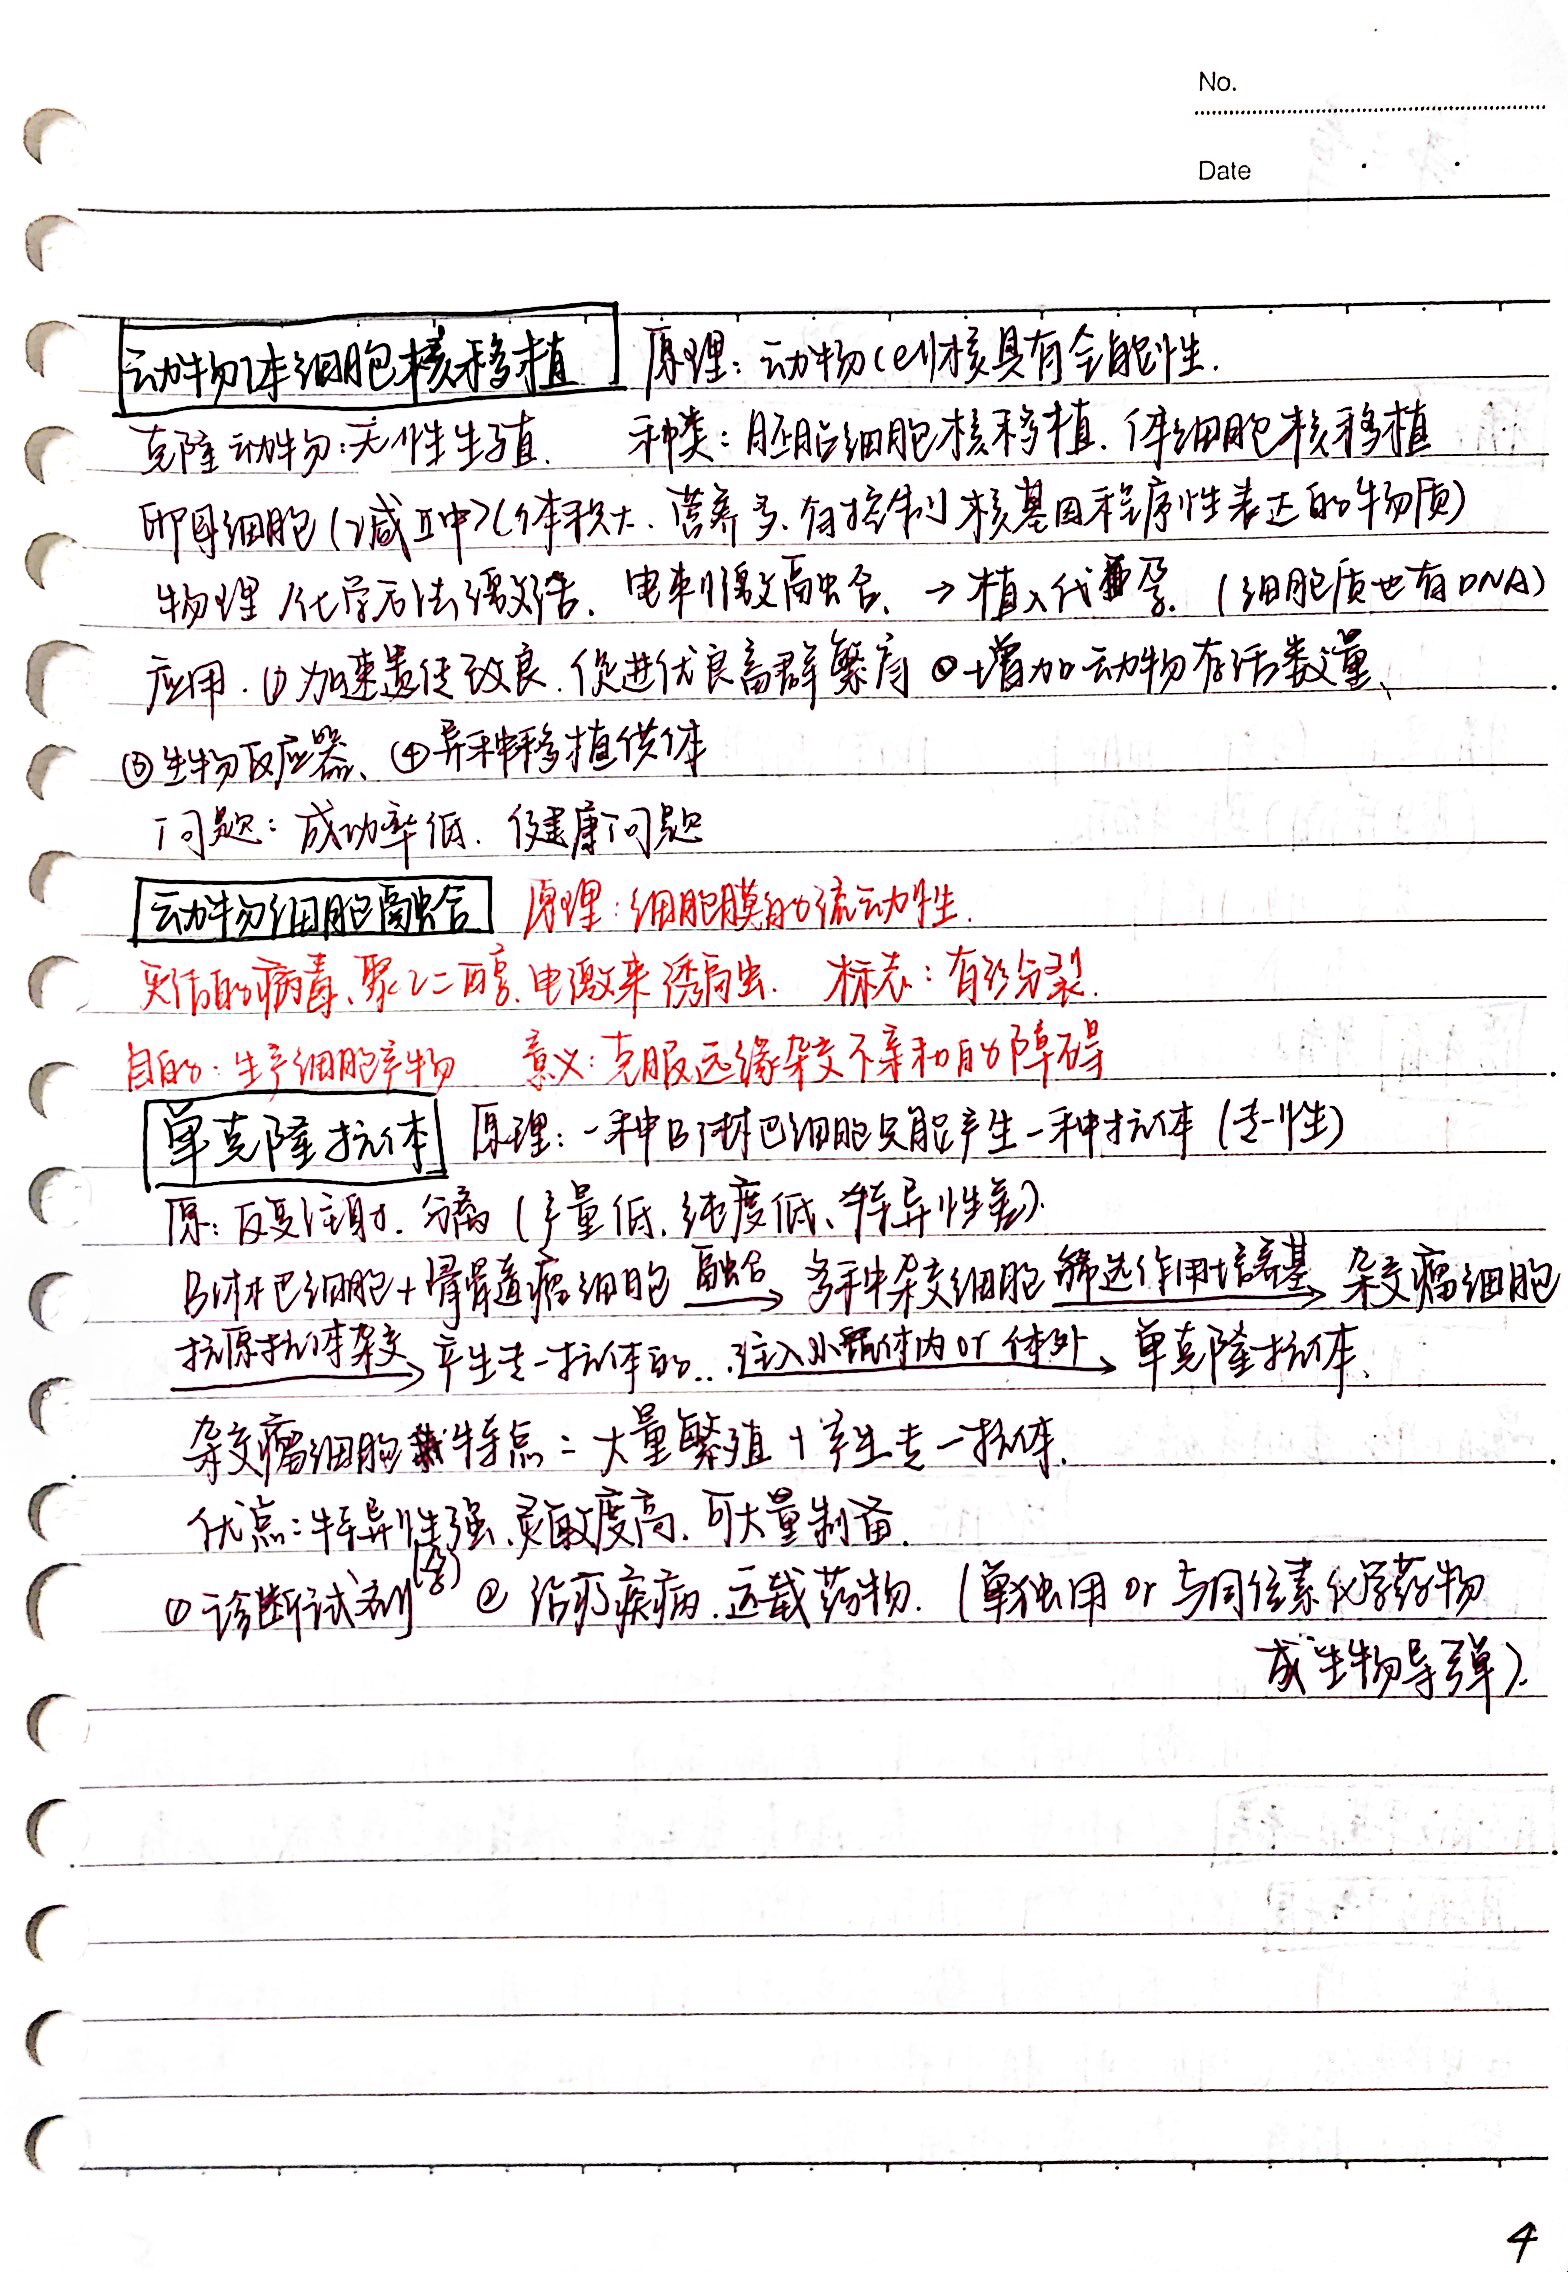 No.
Date
动物体细胞核移植 原理：动物cell核具有全能性.
克隆动物：无性生殖. 种类：胚胎细胞核移植.体细胞核移植
卵母细胞(减Ⅱ中)(体积大.营养多.有控制核基因程序性表达的物质)
物理/化学方法激活.电刺激融合.→植入代孕.(细胞质也有DNA)
应用.①加速遗传改良.促进优良畜群繁育②增加动物存活数量、
③生物反应器、④异种移植供体
问题：成功率低.健康问题
动物细胞融合 原理：细胞膜的流动性.
灭活的病毒、聚乙二醇.电激来诱融. 标志：有丝分裂.
目的：生产细胞产物 意义：克服远缘杂交不亲和的障碍
单克隆抗体 原理：一种B淋巴细胞只能产生一种抗体(专一性)
原：反复注射.分离(产量低.纯度低、特异性差).
B淋巴细胞+骨髓瘤细胞 融合→ 多种杂交细胞 筛选作用培养基→ 杂交瘤细胞
抗原抗体杂交→产生专一抗体的...注入小鼠体内or体外→单克隆抗体、
杂交瘤细胞特点：大量繁殖+产生专一抗体.
优点：特异性强、灵敏度高.可大量制备.
①诊断试剂 ②治疗疾病.运载药物.(单独用or与同位素化学药物
成"生物导弹).
4